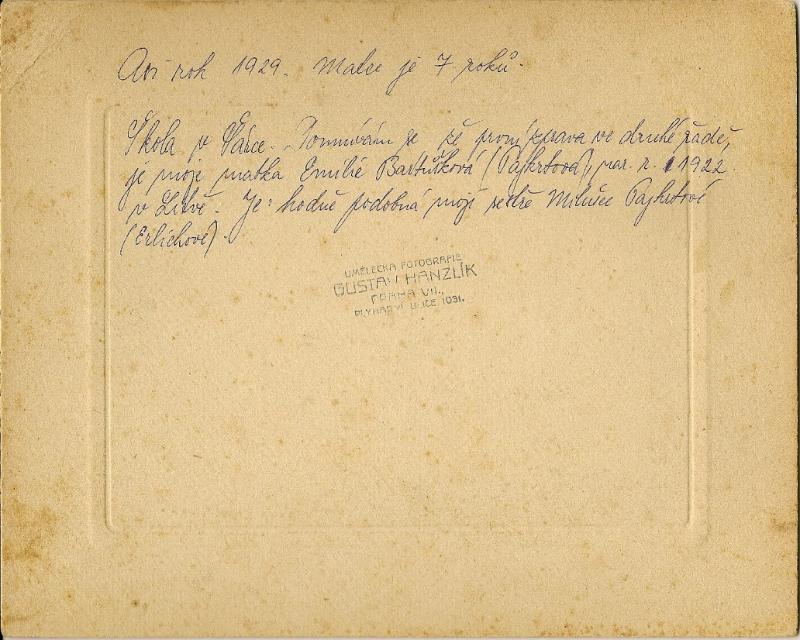 Asi rok 1929. Matce je 7 roků.
Škola v Šárce. Domnívám se že první zprava ve druhé řadě,
je moje matka Emilie Bartůšková (Pajkrtová), nar. r. 1922
v Libě. Je hodně podobná mojí sestře Milušce Pajkrtové
(Erlichové).
UMĚLECKÁ FOTOGRAFIE
GUSTAV HANZLÍK
PRAHA VII.,
ULICE 1031.